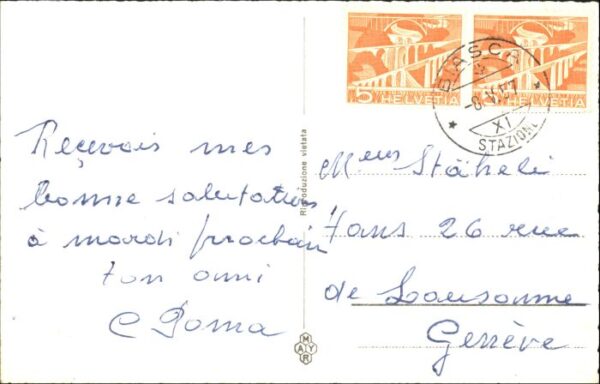 Reçevois mes
bonne salutations
à mardi prochain
ton ami
C Poma
Riproduzione vietata
MAYR
5 HELVETIA
HELVETIA
BIASCA
-8.V.57
XI
STAZIONE
Stäheli
26 rue
de Lausanne
Genève